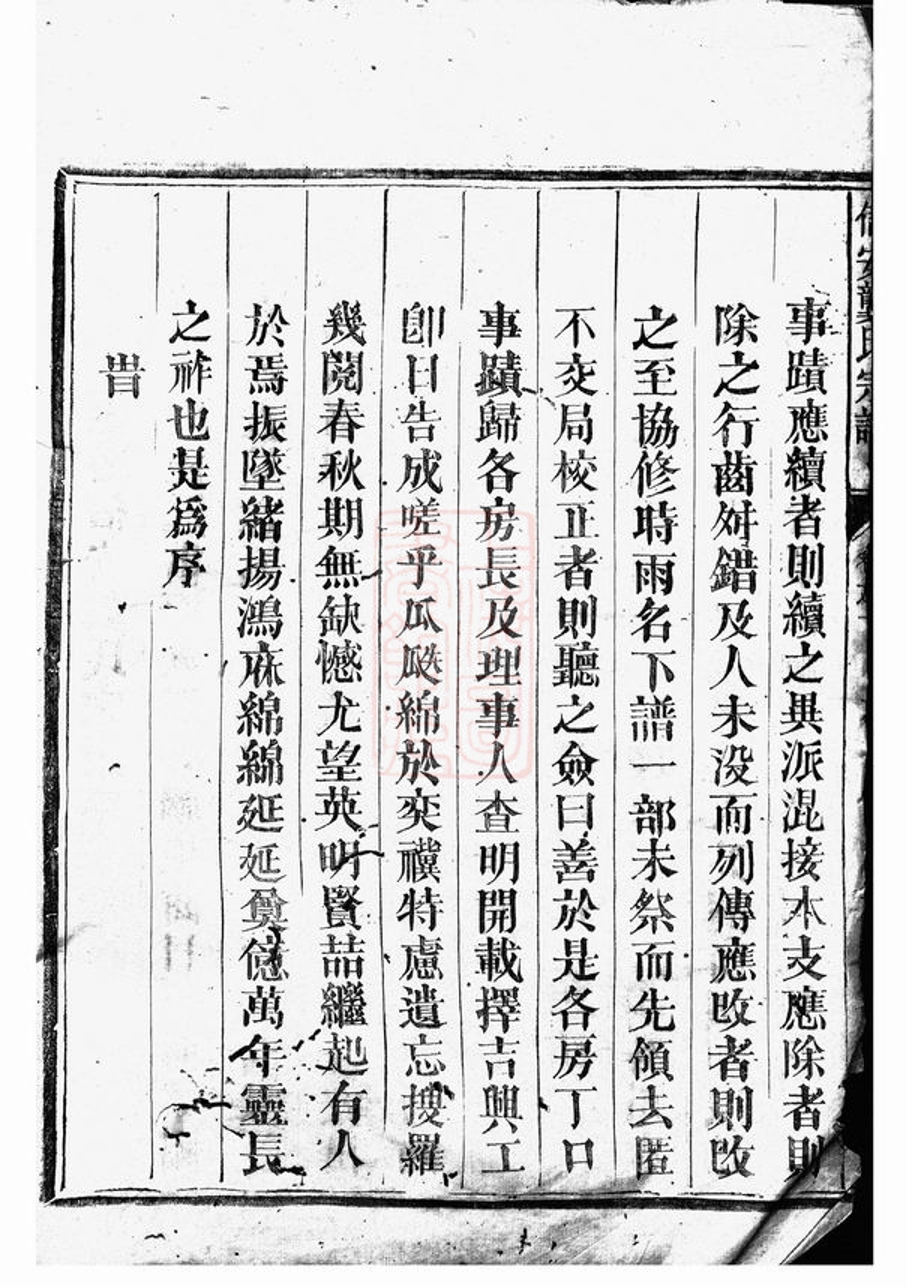 事蹟應續者則續之異派混接本支應除者則
除之行齒舛錯及人未没而列傳應改者則改
之至協修時雨名下譜一部未祭而先領去匿
不交局校正者則聽之僉曰善於是各房丁口
事蹟歸各房長及理事人查明開載擇吉興工
卽日告成嗟乎瓜瓞綿於奕禩特慮遺忘搜羅
幾閱春秋期無缺憾尤望英明賢喆繼起有人
於焉振墜緒揚鴻庥綿綿延延奠億萬年靈長
之祚也是爲序
旹
龔氏宗譜